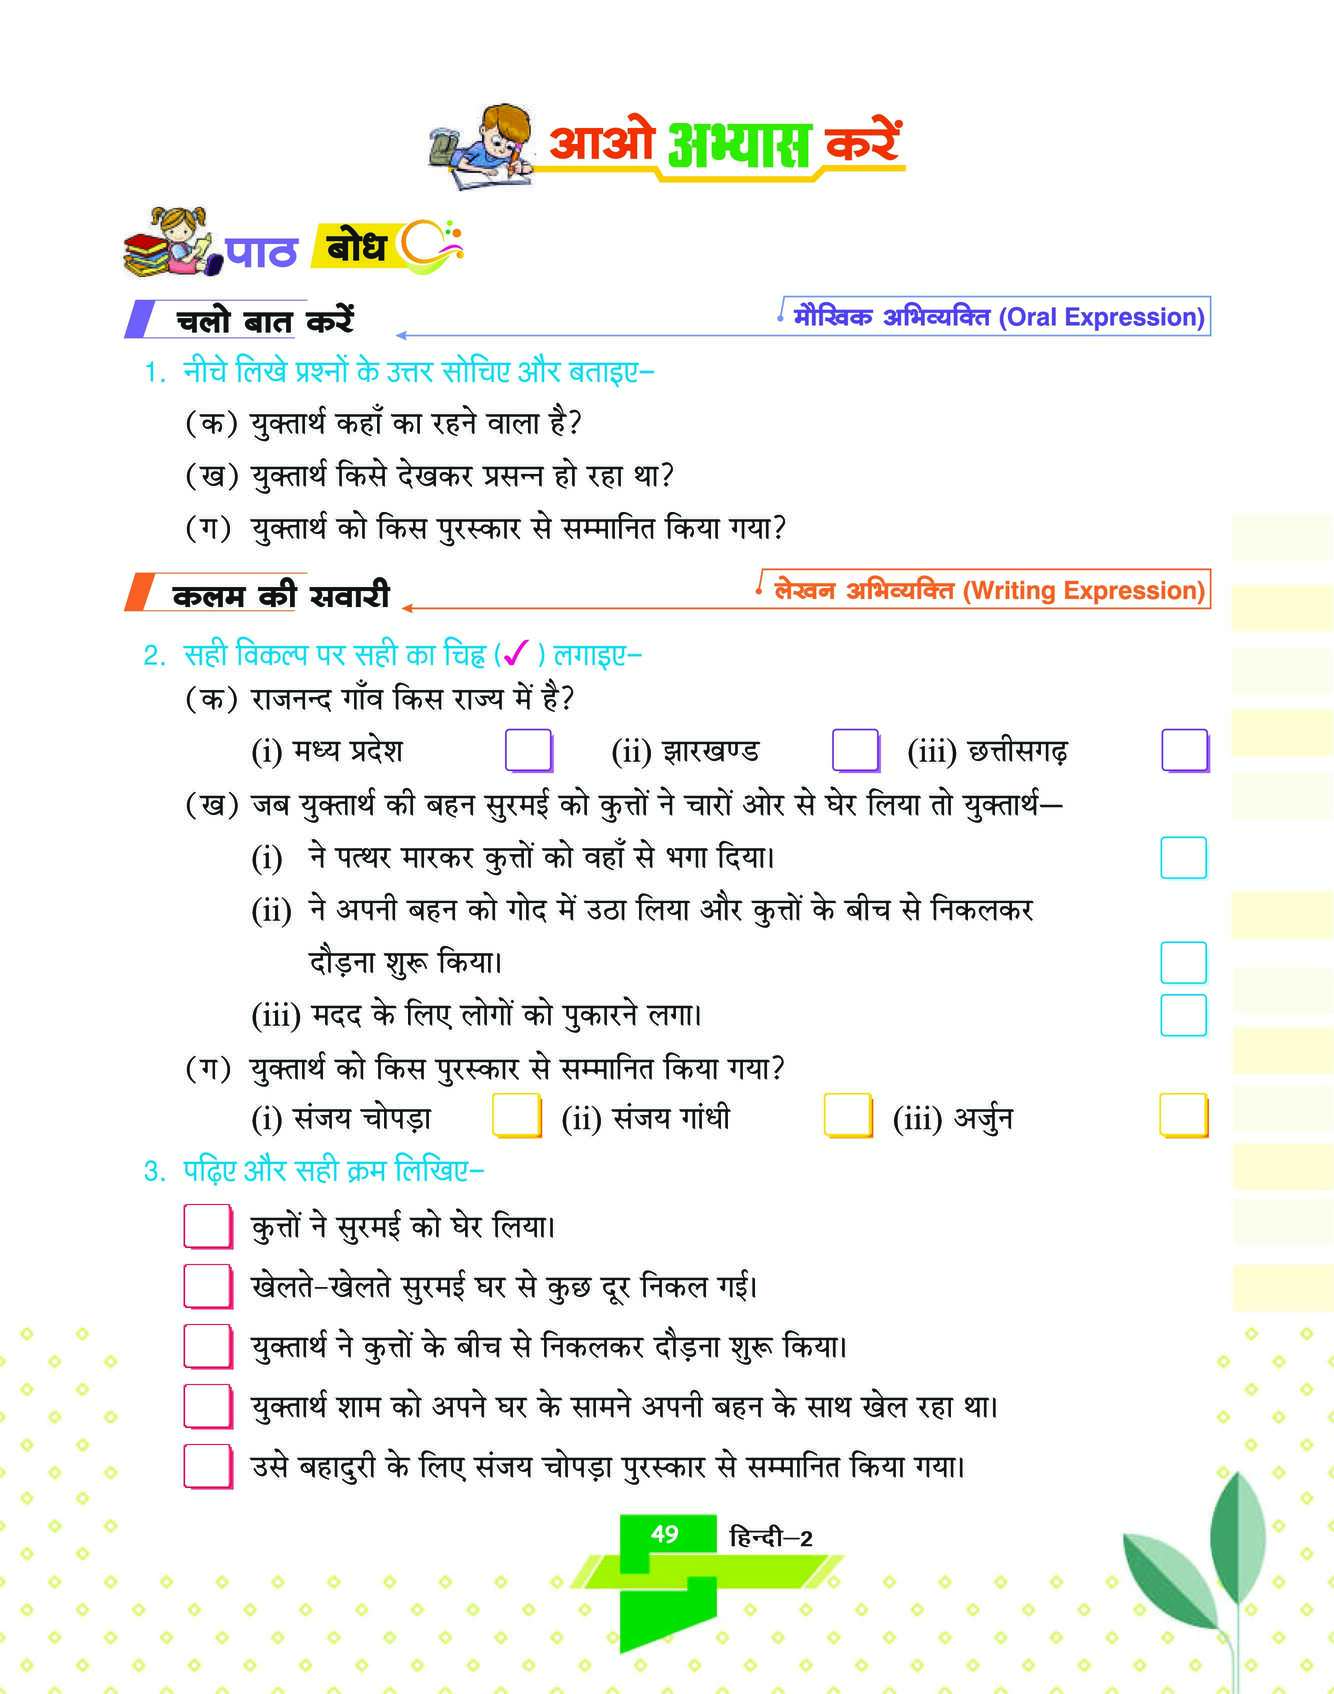 आओ अभ्यास करें
पाठ बोध
चलो बात करें
मौखिक अभिव्यक्ति (Oral Expression)
1. नीचे लिखे प्रश्नों के उत्तर सोचिए और बताइए–
(क) युक्तार्थ कहाँ का रहने वाला है?
(ख) युक्तार्थ किसे देखकर प्रसन्न हो रहा था?
(ग) युक्तार्थ को किस पुरस्कार से सम्मानित किया गया?
कलम की सवारी
लेखन अभिव्यक्ति (Writing Expression)
2. सही विकल्प पर सही का चिह्न (✓) लगाइए–
(क) राजनन्द गाँव किस राज्य में है?
(i) मध्य प्रदेश (ii) झारखण्ड (iii) छत्तीसगढ़
(ख) जब युक्तार्थ की बहन सुरमई को कुत्तों ने चारों ओर से घेर लिया तो युक्तार्थ—
(i) ने पत्थर मारकर कुत्तों को वहाँ से भगा दिया।
(ii) ने अपनी बहन को गोद में उठा लिया और कुत्तों के बीच से निकलकर
दौड़ना शुरू किया।
(iii) मदद के लिए लोगों को पुकारने लगा।
(ग) युक्तार्थ को किस पुरस्कार से सम्मानित किया गया?
(i) संजय चोपड़ा (ii) संजय गांधी (iii) अर्जुन
3. पढ़िए और सही क्रम लिखिए–
कुत्तों ने सुरमई को घेर लिया।
खेलते-खेलते सुरमई घर से कुछ दूर निकल गई।
युक्तार्थ ने कुत्तों के बीच से निकलकर दौड़ना शुरू किया।
युक्तार्थ शाम को अपने घर के सामने अपनी बहन के साथ खेल रहा था।
उसे बहादुरी के लिए संजय चोपड़ा पुरस्कार से सम्मानित किया गया।
49 हिन्दी–2